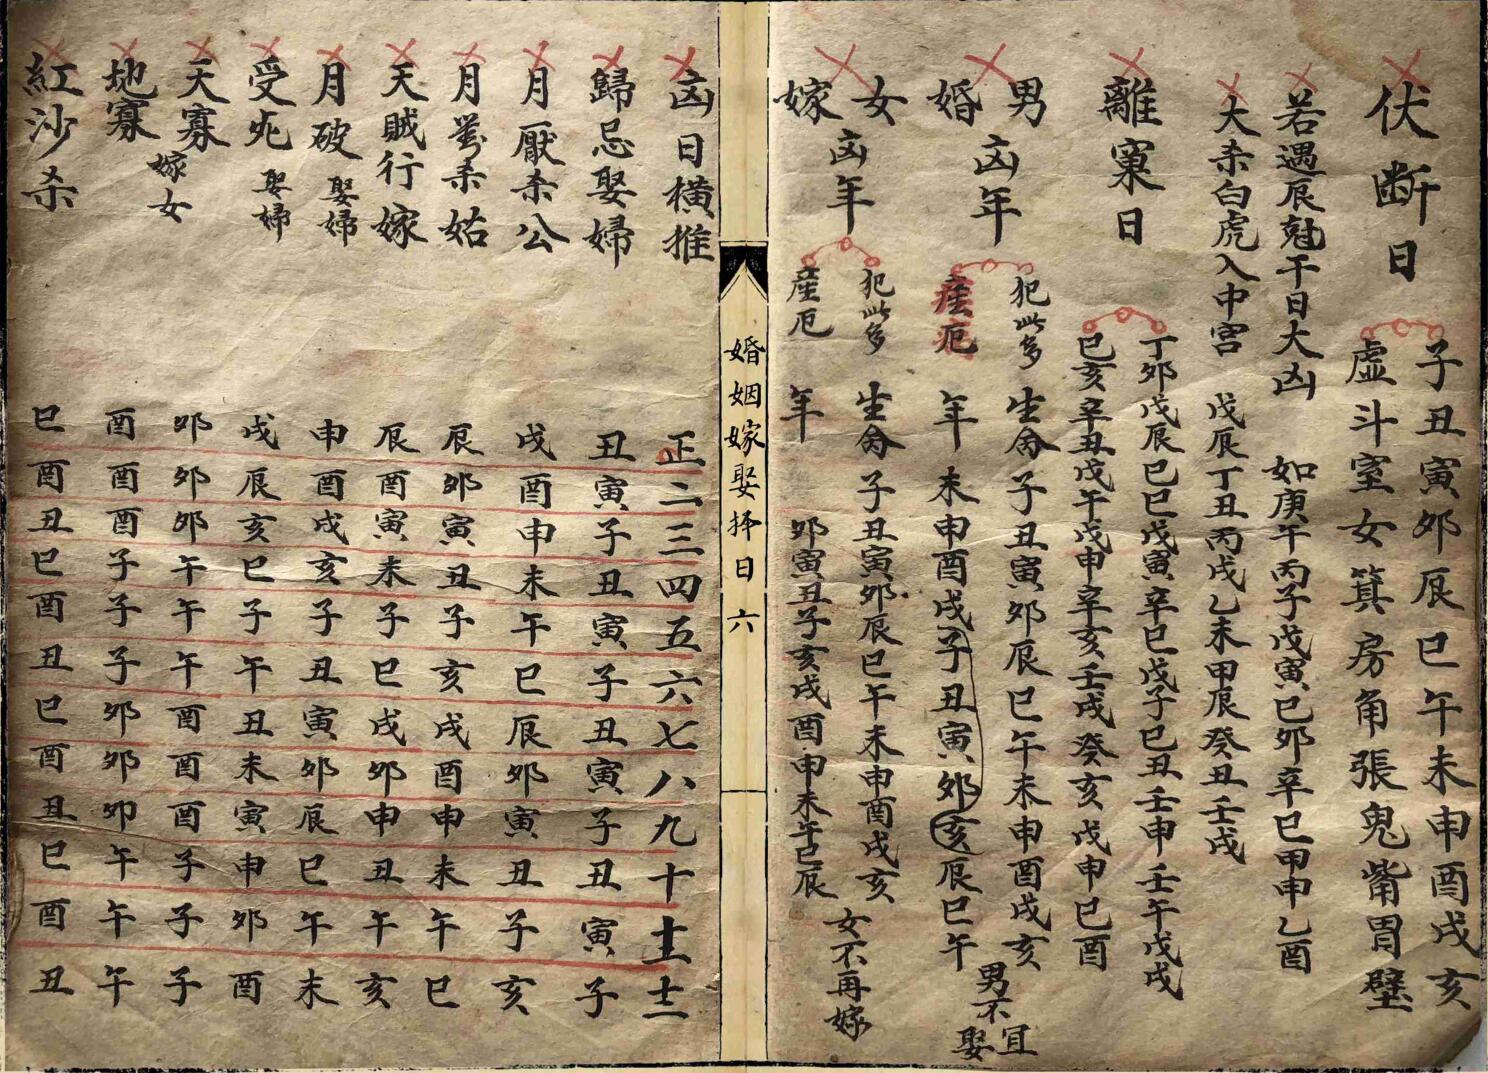 伏断日
子丑寅卯辰巳午未申酉戌亥
虚斗室女箕房角張鬼觜胃壁
若遇辰尅干日大凶 如庚午丙子戊寅巳卯辛巳甲申乙酉
大杀白虎入中宫 戊辰丁丑丙戌乙未甲辰癸丑壬戌
離窠日
丁卯戊辰巳巳戊寅辛巳戊子巳丑壬申壬午戊戌
巳亥辛丑戊午戊申辛亥壬戌癸亥戊申巳酉
男婚凶年
犯此多産厄
生命子丑寅卯辰巳午未申酉戌亥
年未申酉戌子丑寅卯亥辰巳午
男不宜娶
女嫁凶年
犯此多産厄
生命子丑寅卯辰巳午未申酉戌亥
年 卯寅丑子亥戌酉申未午巳辰
女不再嫁
婚姻嫁娶择日 六
凶日横推 正二三四五六七八九十十一十二
歸忌娶婦 丑寅子丑寅子丑寅子丑寅子
月厭杀公 戌酉申未午巳辰卯寅丑子亥
月對杀姑 辰卯寅丑子亥戌酉申未午巳
天賊行嫁 辰酉寅未子巳戌卯申丑午亥
月破娶婦 申酉戌亥子丑寅卯辰巳午未
受死娶婦 戌辰亥巳子午丑未寅申卯酉
天寡嫁女 卯卯卯午午午酉酉酉子子子
地寡 酉酉酉子子子卯卯卯午午午
紅沙杀 巳酉丑巳酉丑巳酉丑巳酉丑